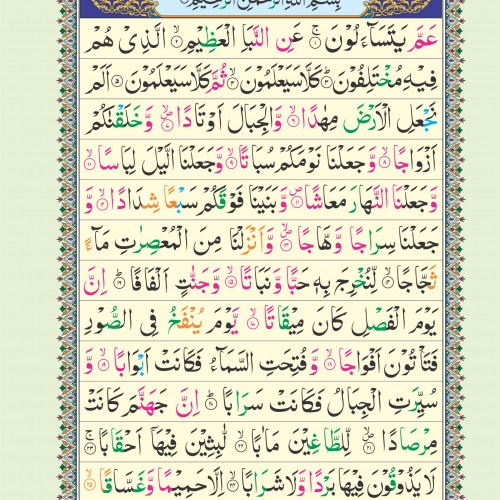 بِسْمِ اللهِ الرَّحْمٰنِ الرَّحِيْمِ
عَمَّ يَتَسَآءَلُوْنَ ۚ ۱ عَنِ النَّبَاِ الْعَظِيْمِ ۙ ۲ الَّذِىْ هُمْ
فِيْهِ مُخْتَلِفُوْنَ ؕ ۳ كَلَّا سَيَعْلَمُوْنَ ۙ ۴ ثُمَّ كَلَّا سَيَعْلَمُوْنَ ۵ اَلَمْ
نَجْعَلِ الْاَرْضَ مِهٰدًا ۙ ۶ وَّالْجِبَالَ اَوْتَادًا ۪ۙ ۷ وَّخَلَقْنٰكُمْ
اَزْوَاجًا ۙ ۸ وَّجَعَلْنَا نَوْمَكُمْ سُبَاتًا ۙ ۹ وَّجَعَلْنَا الَّيْلَ لِبَاسًا ۙ ۱۰
وَّجَعَلْنَا النَّهَارَ مَعَاشًا ۪ ۱۱ وَّبَنَيْنَا فَوْقَكُمْ سَبْعًا شِدَادًا ۙ ۱۲ وَّ
جَعَلْنَا سِرَاجًا وَّهَّاجًا ۪ۙ ۱۳ وَّاَنْزَلْنَا مِنَ الْمُعْصِرٰتِ مَآءً
ثَجَّاجًا ۙ ۱۴ لِّنُخْرِجَ بِهٖ حَبًّا وَّنَبَاتًا ۙ ۱۵ وَّجَنّٰتٍ اَلْفَافًا ؕ ۱۶ اِنَّ
يَوْمَ الْفَصْلِ كَانَ مِيْقَاتًا ۙ ۱۷ يَّوْمَ يُنْفَخُ فِى الصُّوْرِ
فَتَاْتُوْنَ اَفْوَاجًا ۙ ۱۸ وَّفُتِحَتِ السَّمَآءُ فَكَانَتْ اَبْوَابًا ۙ ۱۹ وَّ
سُيِّرَتِ الْجِبَالُ فَكَانَتْ سَرَابًا ؕ ۲۰ اِنَّ جَهَنَّمَ كَانَتْ
مِرْصَادًا ۪ۙ ۲۱ لِّلطَّاغِيْنَ مَاٰبًا ۙ ۲۲ لّٰبِثِيْنَ فِيْهَاۤ اَحْقَابًا ۚ ۲۳
لَا يَذُوْقُوْنَ فِيْهَا بَرْدًا وَّلَا شَرَابًا ۙ ۲۴ اِلَّا حَمِيْمًا وَّغَسَّاقًا ۙ ۲۵